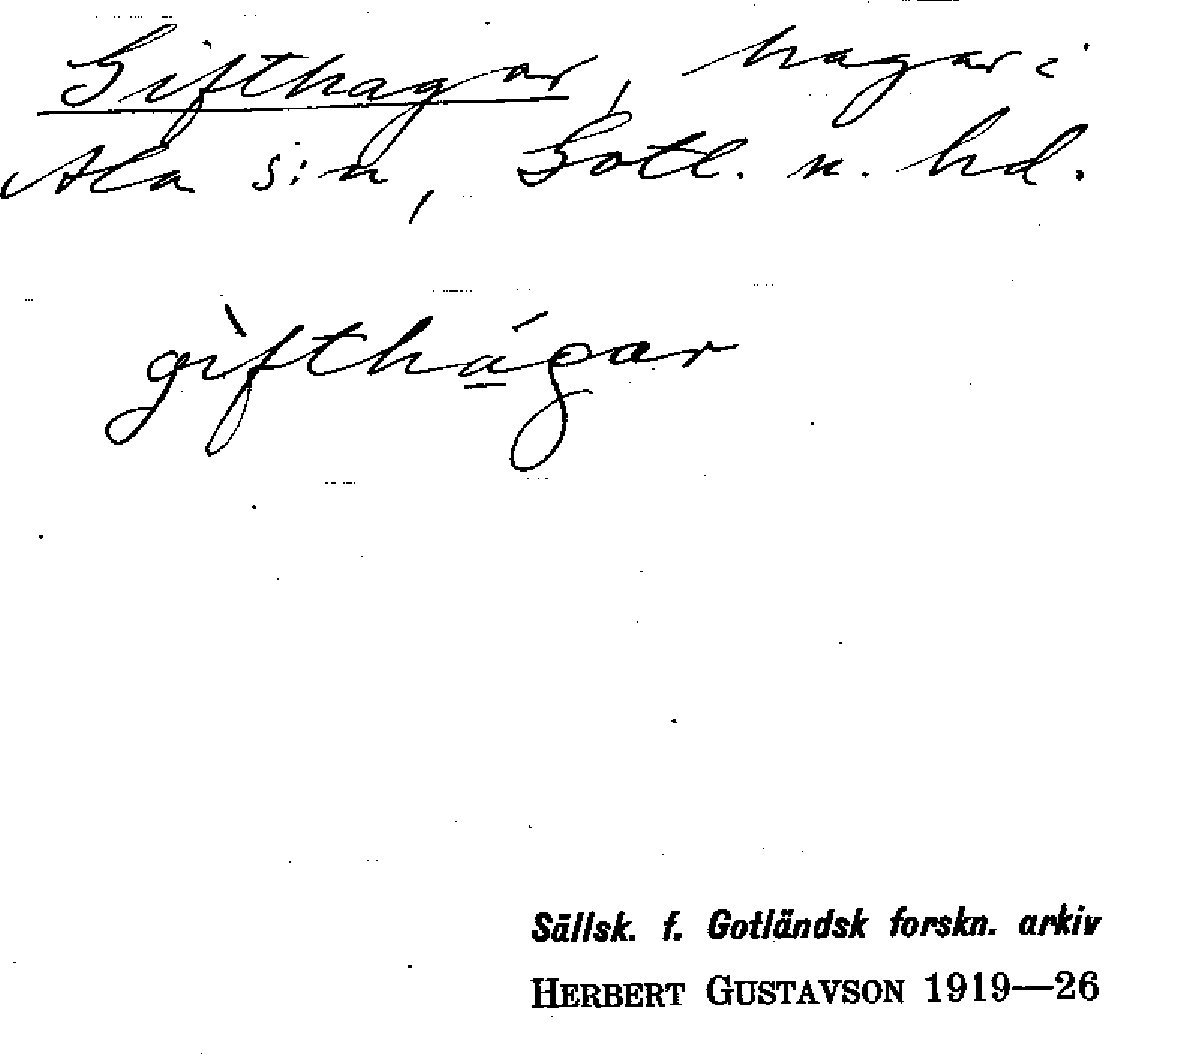 Gifthagar, hagar i
Ala s:n, Gotl. n. hd.
gìfthágar
Sällsk. f. Gotländsk forskn. arkiv
HERBERT GUSTAVSON 1919—26